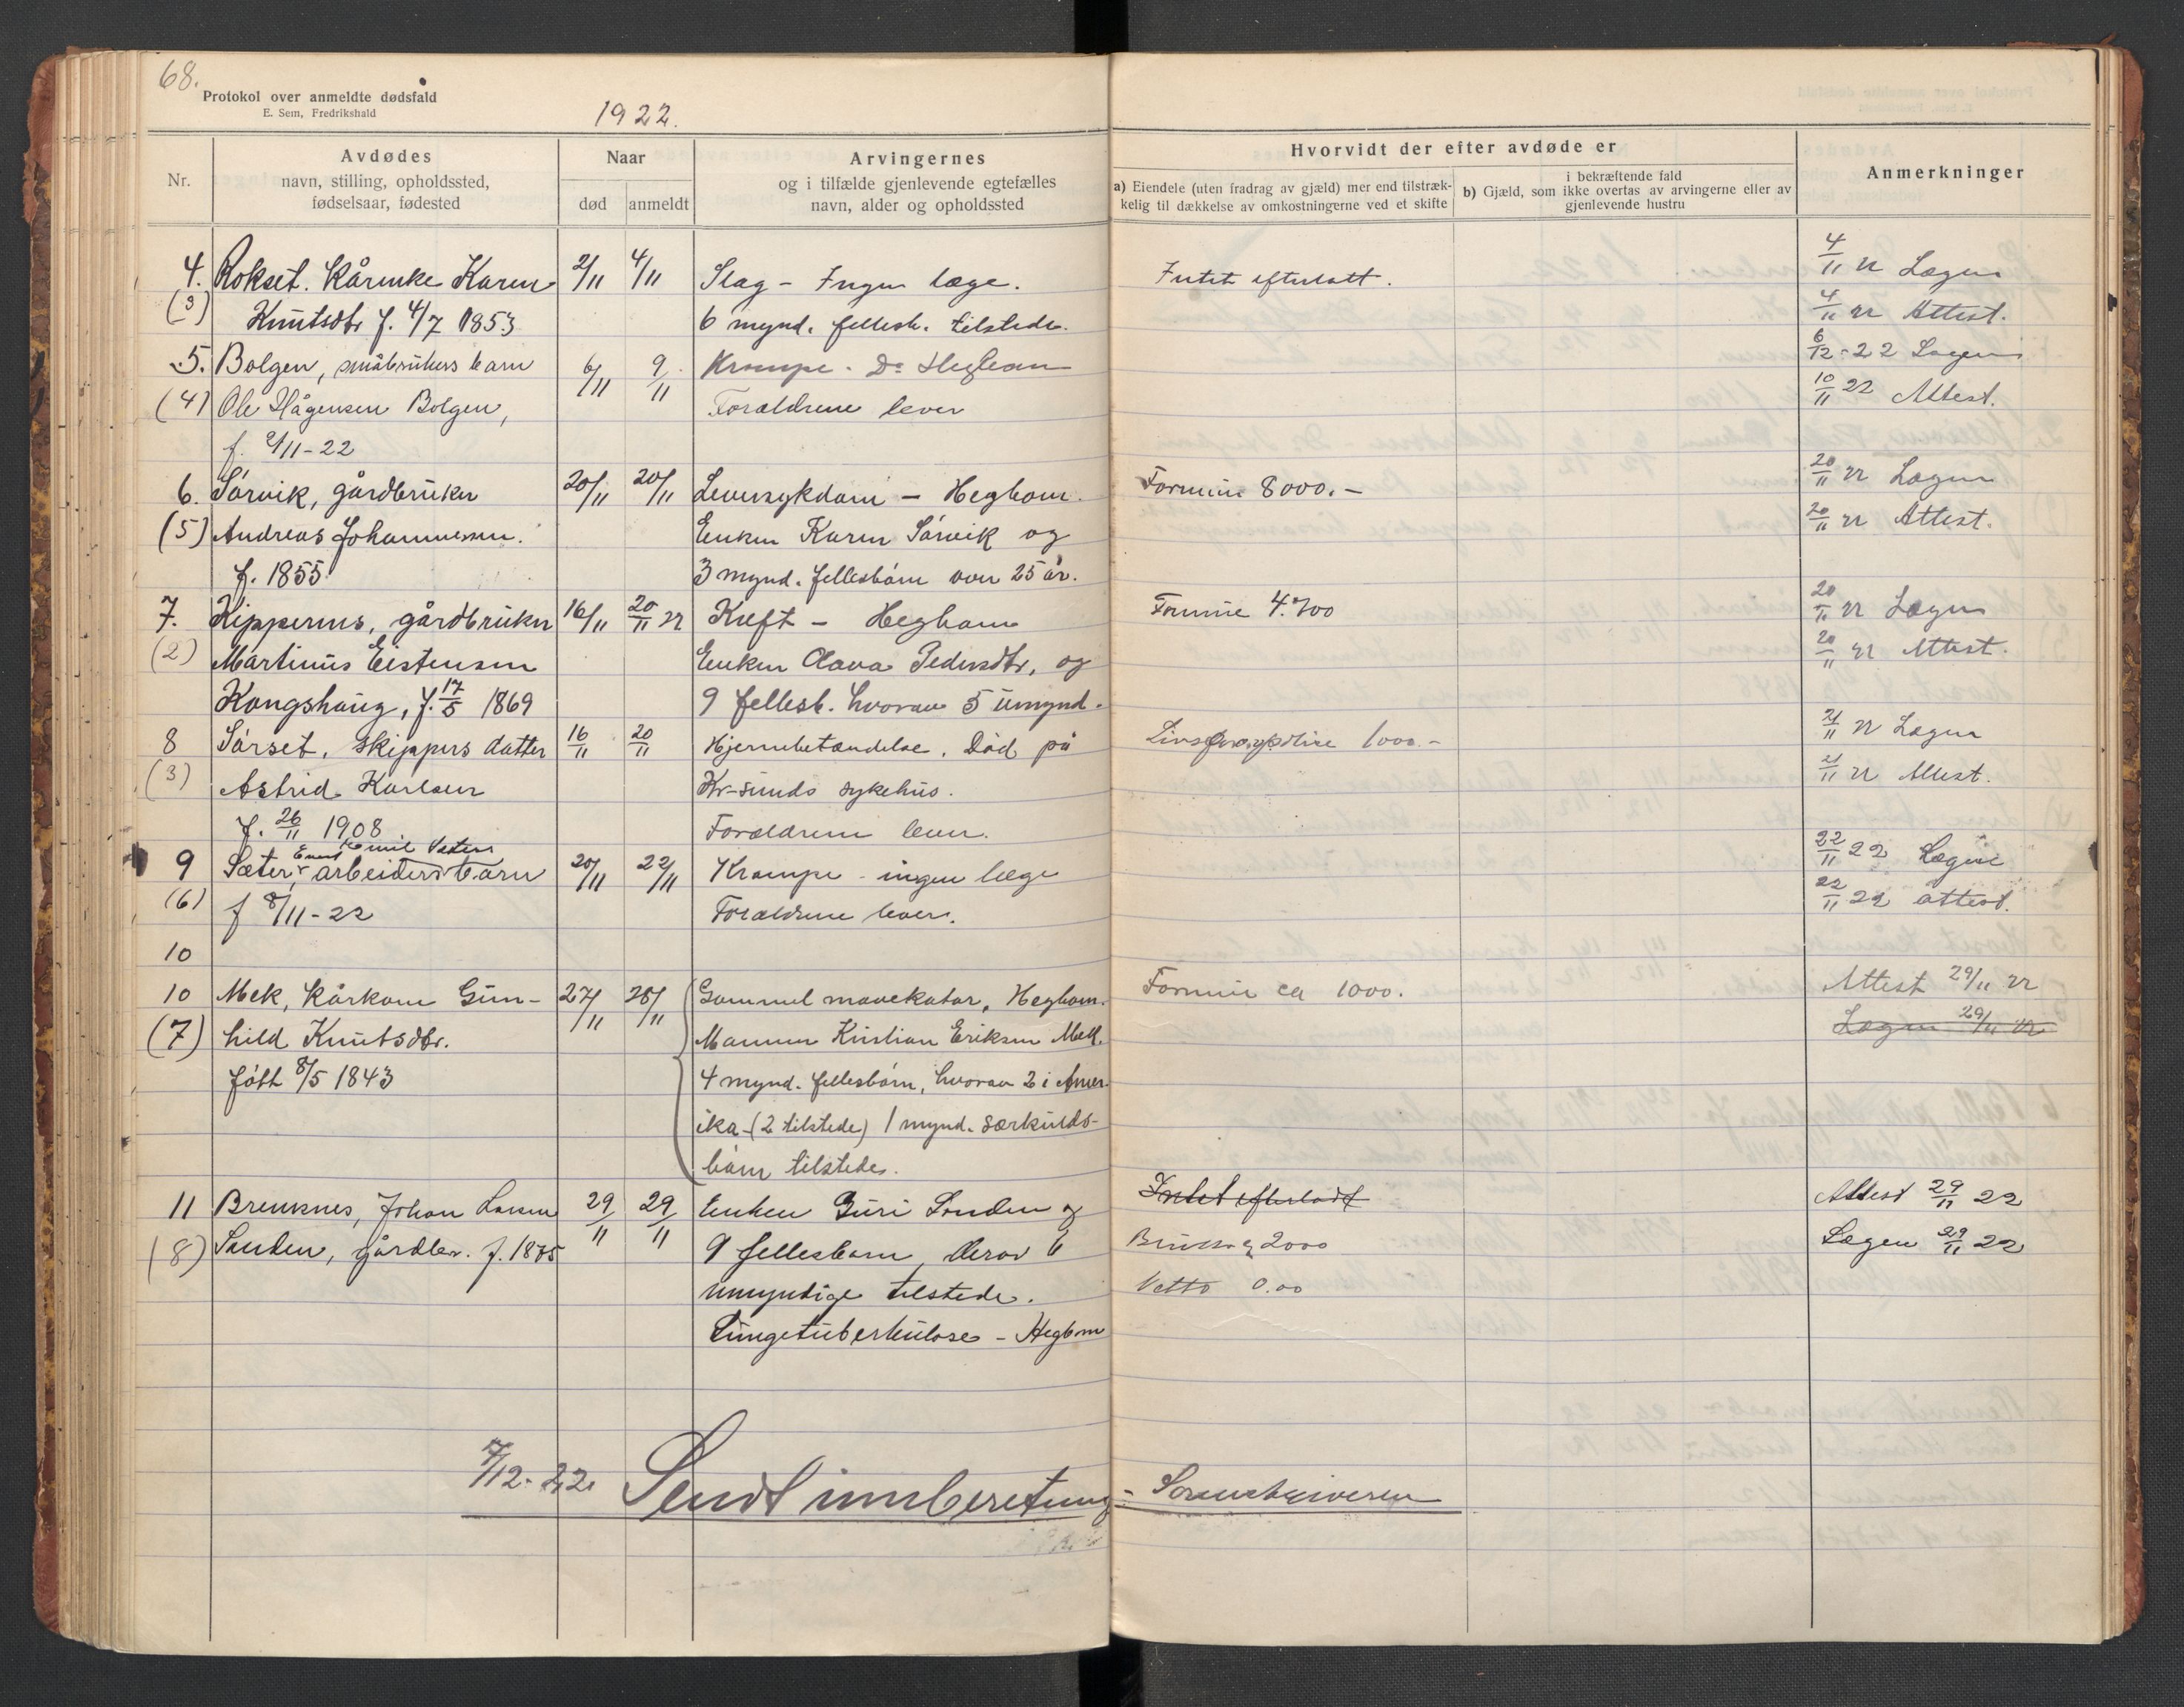 68.
Protokol over anmeldte dødsfald
E. Sem, Fredrikshald
1922.
Nr.
Avdødes
navn, stilling, opholdssted,
fødselsaar, fødested
Naar
død
anmeldt
Arvingernes
og i tilfælde gjenlevende egtefælles
navn, alder og opholdssted
Hvorvidt der efter avdøde er
a) Eiendele (uten fradrag av gjæld) mer end tilstræk-
kelig til dækkelse av omkostningerne ved et skifte
i bekræftende fald
b) Gjæld, som ikke overtas av arvingerne eller av
gjenlevende hustru
Anmerkninger
4. Rokset. Kårenke Karen 2/11 4/11 Slag - Ingen læge. Intet efterlatt. 4/11 22 Lægen
(3) Knutsdtr f. 4/7 1853 6 mynd. fellesb. tilstede. 4/11 22 Attest.
5. Bolgen, småbrukers barn 6/11 9/11 Krampe. Dr Hegbom 6/12-22 Lægen
(4) Ole Hågensen Bolgen, Forældrene lever 10/11 22 Attest.
f. 2/11-22
6. Sørvik, gårdbruker 20/11 20/11 Leversykdom - Hegbom. Formue 8000.- 20/11 22 Lægen
(5) Andreas Johannessen. Enken Karen Sørvik og 20/11 22 Attest.
f. 1855 3 mynd. fellesbørn over 25 år.
7. Kippernes, gårdbruker 16/11 20/11 22 Kreft - Hegbom Formue 4.700 20/11 22 Lægen
(2) Martinus Eistensen Enken Olava Pedersdtr, og 20/11 22 Attest.
Kongshaug, f. 17/5 1869 9 fellesb. hvorav 5 umynd.
8 Sørset, skippers datter 16/11 20/11 Hjernebetændelse. Død på 1000.- 21/11 22 Lægen
(3) Astrid Karlsen Kr-sunds sykehus. 21/11 22 Attest.
f. 26/11 1908 Forældrene lever.
Emil
9 Sæter, arbeiders barn 20/11 22/11 Krampe - ingen læge 22/11 22 Lægen
(6) f 8/11-22 Forældrene lever. 22/11 22 attest.
10
10 Mek, kårkone Gun- 27/11 28/11 Gammel mavekatar, Hegbom. Formue ca 1000. Attest 29/11 22
(7) hild Knutsdtr. Mannen Kristian Eriksen Mek. Lægen 29/11 22
født 8/5 1843 4 mynd. fellesbørn, hvorav 2 i Amer-
ika - (2 tilstede) 1 mynd. særkulds-
barn tilstede.
11 Bremsnes, Johan Larsen 29/11 29/11 Enken Guri Sanden og Intet efterladt Attest 29/11 22
(8) Sanden, gårdbr. f. 9 fellesbarn, derav 6 2000 Lægen 29/11 22
umyndige tilstede. Netto 0.00
Lungetuberkulose - Hegbom
7/12-22. Sendt innberetung - Sorenskriveren